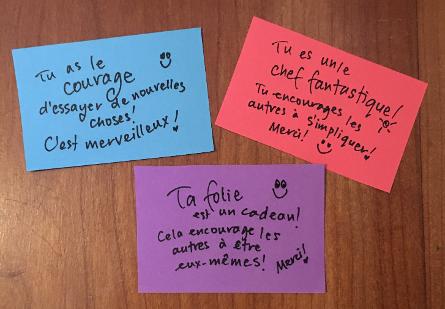 Tu as le
courage
d'essayer de nouvelles
choses!
C'est merveilleux!
Tu es un/e
chef fantastique!
Tu encourages les
autres à s'impliquer!
Merci!
Ta folie
est un cadeau!
Cela encourage les
autres à être
eux-mêmes!
Merci!